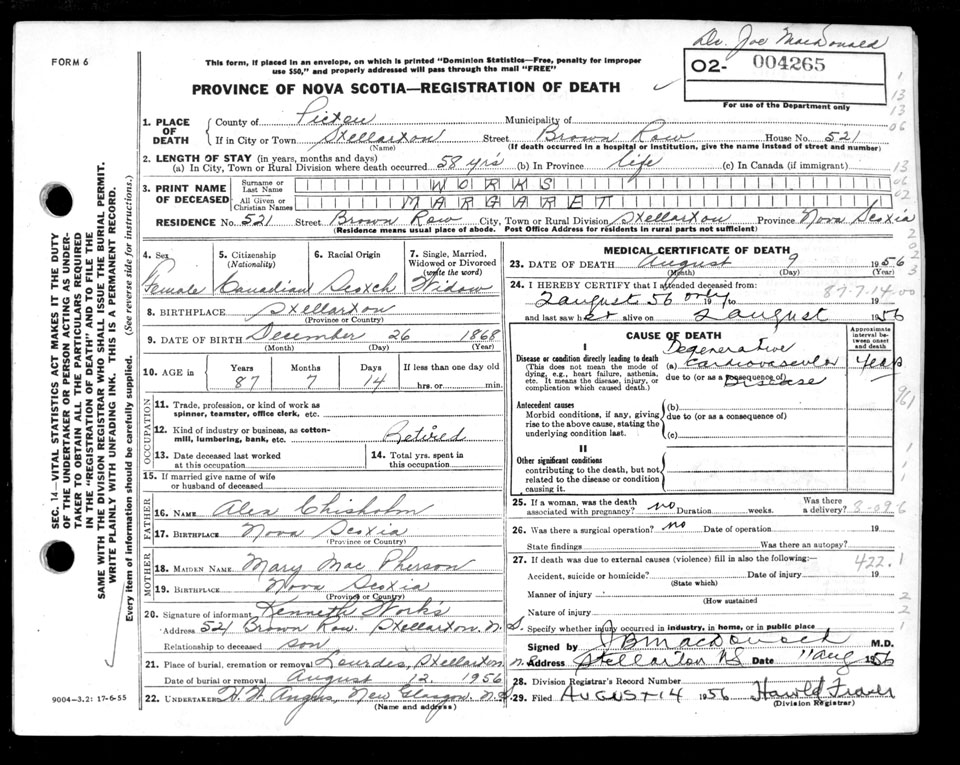 Dr. Joe MacDonald
FORM 6
This form, if placed in an envelope, on which is printed "Dominion Statistics—Free, penalty for improper
use $50," and properly addressed will pass through the mail "FREE"
O2- 004265
For use of the Department only
PROVINCE OF NOVA SCOTIA—REGISTRATION OF DEATH
1. PLACE OF DEATH
County of Pictou Municipality of
If in City or Town Stellarton Street Brown Row House No. 521
(Name) (If death occurred in a hospital or institution, give the name instead of street and number)
2. LENGTH OF STAY (in years, months and days)
(a) In City, Town or Rural Division where death occurred 58 yrs (b) In Province life (c) In Canada (if immigrant)
3. PRINT NAME OF DECEASED
Surname or Last Name WORKS
All Given or Christian Names MARGARET
RESIDENCE No. 521 Street Brown Row City, Town or Rural Division Stellarton Province Nova Scotia
(Residence means usual place of abode. Post Office Address for residents in rural parts not sufficient)
4. Sex Female
5. Citizenship (Nationality) Canadian
6. Racial Origin Scotch
7. Single, Married, Widowed or Divorced (write the word) Widow
8. BIRTHPLACE Stellarton
(Province or Country)
9. DATE OF BIRTH December 26 1868
(Month) (Day) (Year)
10. AGE in Years 87 Months 7 Days 14 If less than one day old hrs. or min.
OCCUPATION
11. Trade, profession, or kind of work as spinner, teamster, office clerk, etc.
12. Kind of industry or business, as cotton-mill, lumbering, bank, etc. Retired
13. Date deceased last worked at this occupation
14. Total yrs. spent in this occupation
15. If married give name of wife or husband of deceased
FATHER
16. NAME Alex Chisholm
17. BIRTHPLACE Nova Scotia
(Province or Country)
MOTHER
18. MAIDEN NAME Mary Mac Pherson
19. BIRTHPLACE Nova Scotia
(Province or Country)
20. Signature of informant Kenneth Works
Address 521 Brown Row. Stellarton N.S.
Relationship to deceased son
21. Place of burial, cremation or removal Lourdes, Stellarton N.S.
Date of burial or removal August 12, 1956
22. UNDERTAKER H. W. Angus, New Glasgow. N.S.
(Name and address)
MEDICAL CERTIFICATE OF DEATH
23. DATE OF DEATH August 9 1956
(Month) (Day) (Year)
24. I HEREBY CERTIFY that I attended deceased from:
2 august 56 only 19 to 19
87-7-14-00
and last saw her alive on 2 august 1956
CAUSE OF DEATH
Approximate interval between onset and death
I
Disease or condition directly leading to death
(This does not mean the mode of dying, e.g., heart failure, asthenia, etc. It means the disease, injury, or complication which caused death.)
(a) Degenerative Cardiovascular Disease years
due to (or as a consequence of)
Antecedent causes
Morbid conditions, if any, giving rise to the above cause, stating the underlying condition last.
(b)
due to (or as a consequence of)
(c)
II
Other significant conditions
contributing to the death, but not related to the disease or condition causing it.
25. If a woman, was the death associated with pregnancy? no Duration weeks. Was there a delivery?
26. Was there a surgical operation? no Date of operation 19
State findings Was there an autopsy?
27. If death was due to external causes (violence) fill in also the following: 422.1
Accident, suicide or homicide? Date of injury 19
(State which)
Manner of injury
(How sustained)
Nature of injury
Specify whether injury occurred in industry, in home, or in public place
Signed by J B MacDonald M.D.
Address Stellarton NS Date 11 aug 1956
28. Division Registrar's Record Number
29. Filed AUGUST 14 1956 Harold Fraser
(Division Registrar)
SEC. 14—VITAL STATISTICS ACT MAKES IT THE DUTY
OF THE UNDERTAKER OR PERSON ACTING AS UNDER-
TAKER TO OBTAIN ALL THE PARTICULARS REQUIRED
IN THE "REGISTRATION OF DEATH" AND TO FILE THE
SAME WITH THE DIVISION REGISTRAR WHO SHALL ISSUE THE BURIAL PERMIT.
WRITE PLAINLY WITH UNFADING INK. THIS IS A PERMANENT RECORD.
Every item of information should be carefully supplied. (See reverse side for instructions.)
9004-3.2: 17-6-55